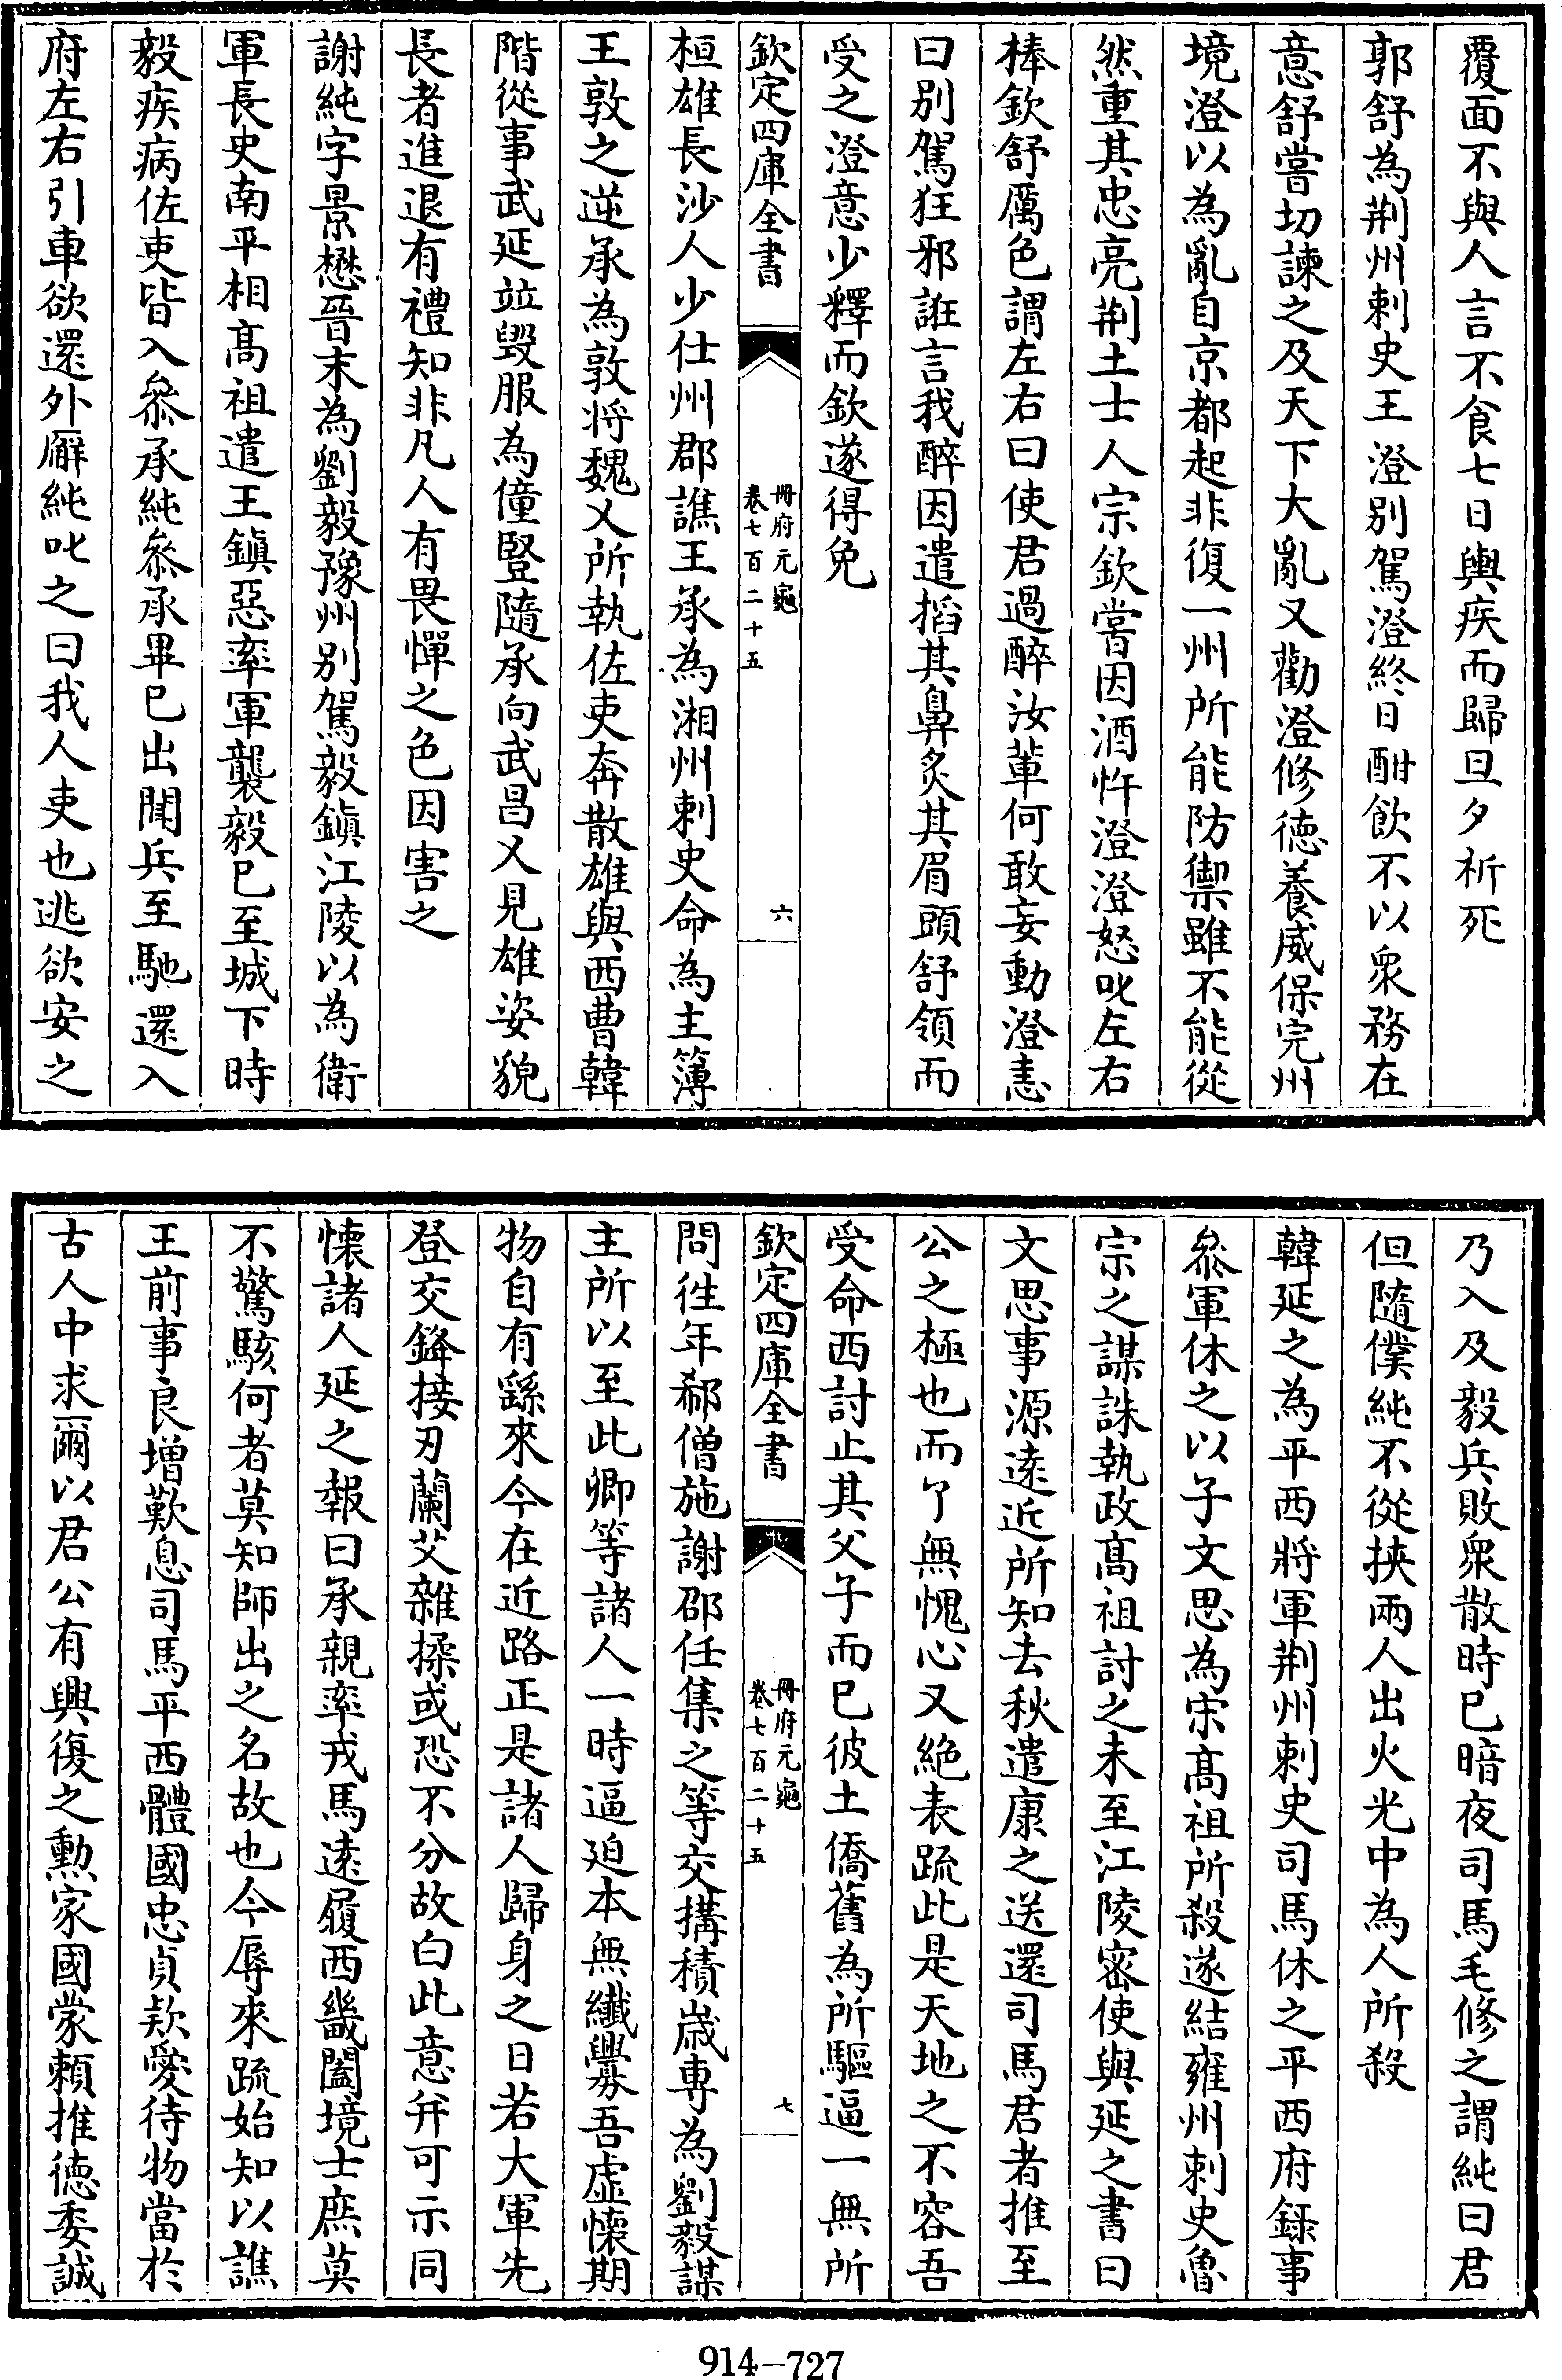 覆面不與人言不食七日輿疾而歸旦夕祈死
郭舒為荆州刺史王澄别駕澄終日酣飲不以衆務在
意舒嘗切諫之及天下大亂又勸澄修徳養威保完州
境澄以為亂自京都起非復一州所能防禦雖不能從
然重其忠亮荆土士人宗欽嘗因酒忤澄澄怒叱左右
棒欽舒厲色謂左右曰使君過醉汝軰何敢妄動澄恚
曰别駕狂邪誑言我醉因遣搯其鼻炙其眉頭舒領而
受之澄意少釋而欽遂得免
欽定四庫全書
冊府元龜
卷七百二十五
六
桓雄長沙人少仕州郡譙王承為湘州刺史命為主簿
王敦之逆承為敦将魏乂所執佐吏奔散雄與西曹韓
階從事武延竝毀服為僮豎隨承向武昌乂見雄姿貌
長者進退有禮知非凡人有畏憚之色因害之
謝純字景懋晉末為劉毅豫州别駕毅鎮江陵以為衛
軍長史南平相髙祖遣王鎮惡率軍襲毅已至城下時
毅疾病佐吏皆入叅承純叅承畢已出聞兵至馳還入
府左右引車欲還外廨純叱之曰我人吏也逃欲安之
乃入及毅兵敗衆散時已暗夜司馬毛修之謂純曰君
但隨僕純不從挾兩人出火光中為人所殺
韓延之為平西將軍荆州刺史司馬休之平西府録事
叅軍休之以子文思為宋髙祖所殺遂結雍州刺史魯
宗之謀誅執政髙祖討之未至江陵密使與延之書曰
文思事源逺近所知去秋遣康之送還司馬君者推至
公之極也而了無愧心又絶表疏此是天地之不容吾
受命西討止其父子而已彼土僑舊為所驅逼一無所
欽定四庫全書
冊府元龜
卷七百二十五
七
問徃年郗僧施謝邵任集之等交搆積嵗専為劉毅謀
主所以至此卿等諸人一時逼廹本無纖釁吾虚懐期
物自有繇來今在近路正是諸人歸身之日若大軍先
登交鋒接刃蘭艾雜揉或恐不分故白此意并可示同
懐諸人延之報曰承親率戎馬逺履西畿闔境士庶莫
不驚駭何者莫知師出之名故也今辱來疏始知以譙
王前事良增歎息司馬平西體國忠貞欵愛待物當於
古人中求爾以君公有興復之勲家國蒙頼推徳委誠
914-727